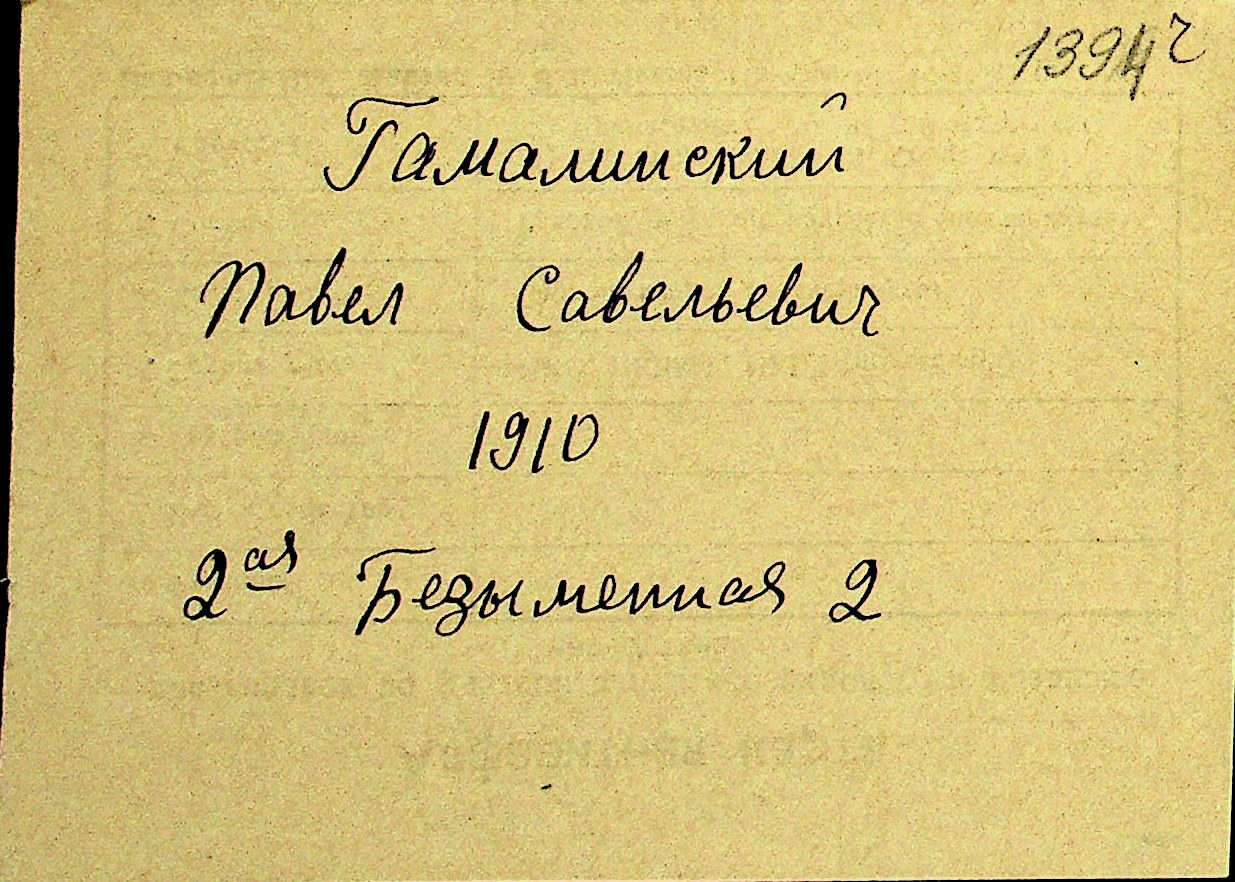 1394 ч
Гамалинский
Павел Савельевич
1910
2ая Безыменная 2